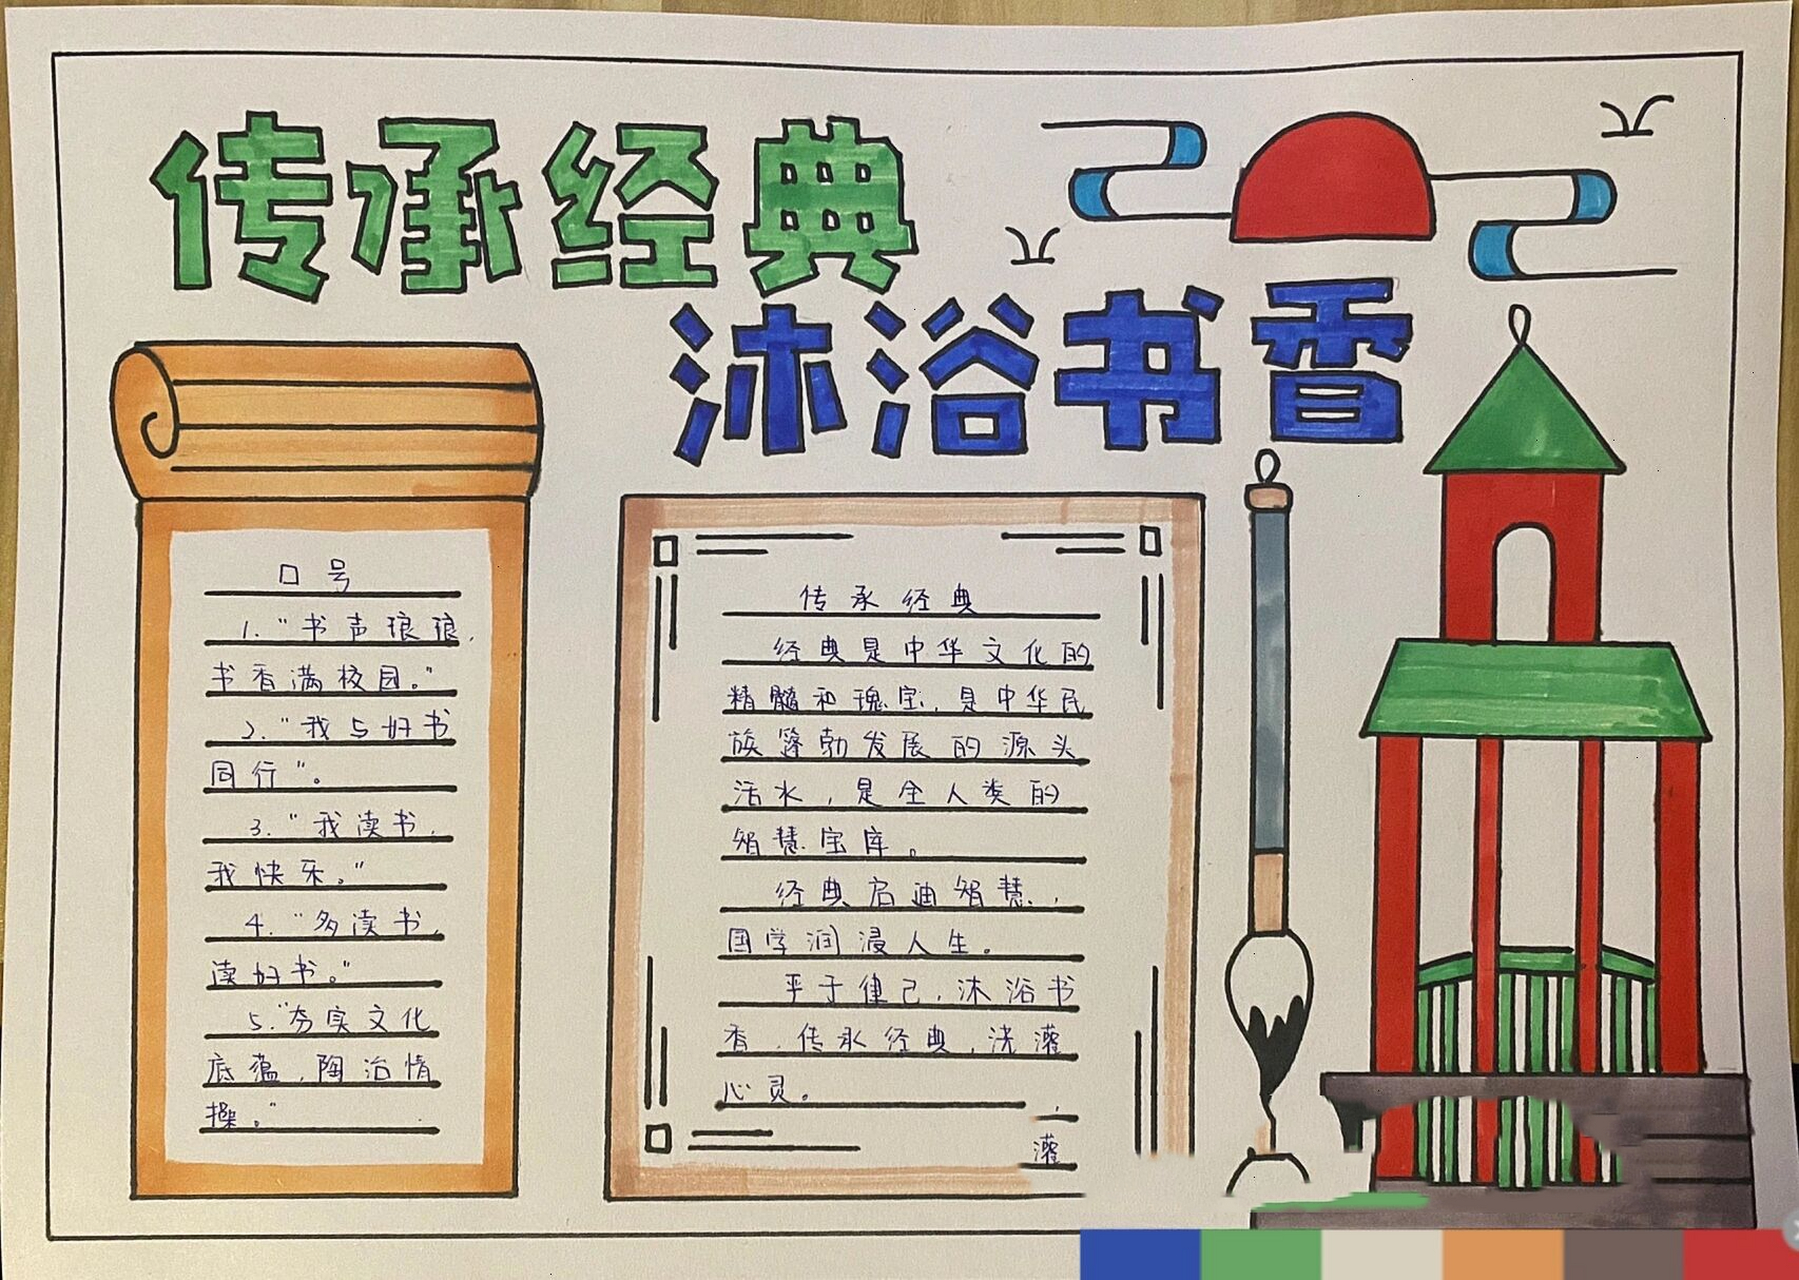 传承经典
沐浴书香
口号
1.“书声琅琅，
书香满校园。”
2.“我与好书
同行”。
3.“我读书，
我快乐。”
4.“多读书，
读好书。”
5.“夯实文化
底蕴，陶冶情
操。”
传承经典
经典是中华文化的
精髓和瑰宝，是中华民
族蓬勃发展的源头
活水，是全人类的
智慧宝库。
经典启迪智慧，
国学润浸人生。
严于律己，沐浴书
香，传承经典，浇灌
心灵。
灌